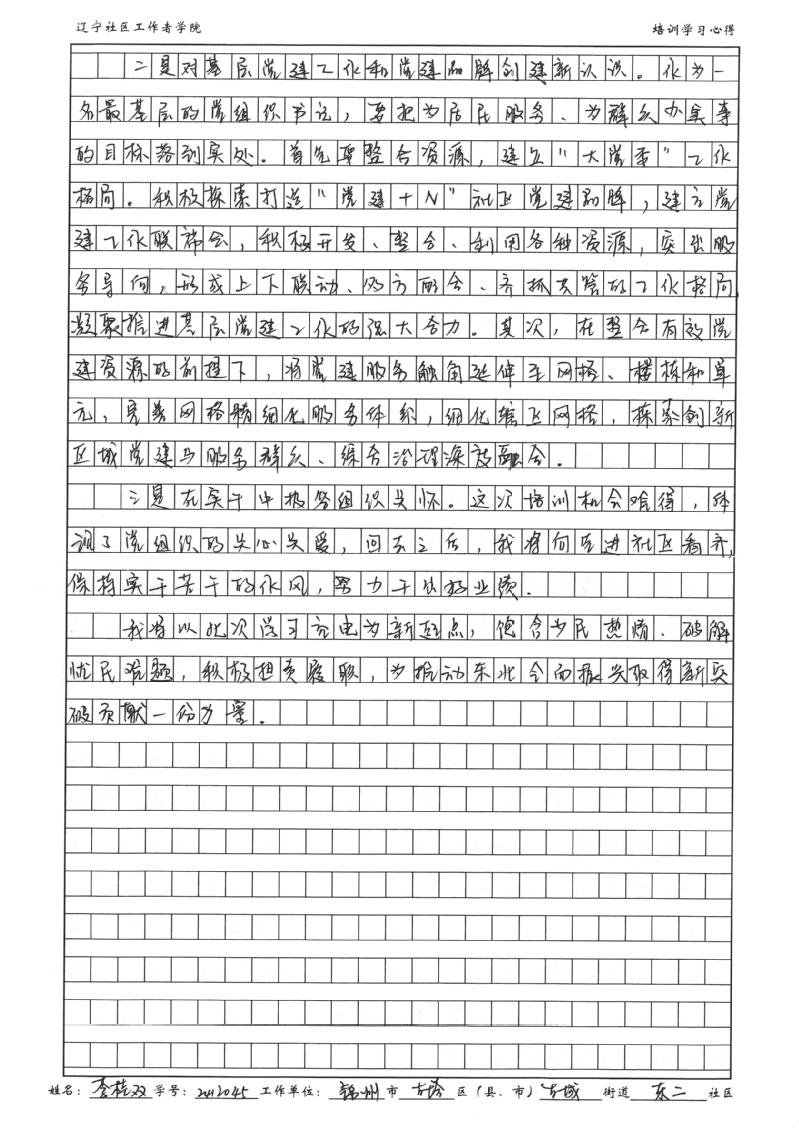 辽宁社区工作者学院 培训学习心得
二是对基层党建工作和党建品牌创建新认识。作为一
名最基层的党组织书记，要把为居民服务、为群众办实事
的目标落到实处。首先要整合资源，建立“大党委”工作
格局。积极探索打造“党建+N”社区党建品牌，建立党
建工作联席会，积极开发、整合、利用各种资源，突出服
务导向，形成上下联动、四方配合、齐抓共管的工作格局，
凝聚推进基层党建工作的强大合力。其次，在整合有效党
建资源的前提下，将党建服务触角延伸至网格、楼栋和单
元，完善网格精细化服务体系，细化辖区网格，探索创新
区域党建与服务群众、综合治理深度融合。
三是在实干中报答组织关怀。这次培训机会难得，体
现了党组织的关心关爱，回去之后，我将向先进社区看齐，
保持实干苦干的作风，努力干出好业绩。
我将以此次学习充电为新起点，饱含为民热情、破解
忧民难题，积极担责履职，为推动东北全面振兴取得新突
破贡献一份力量。
姓名：李桂双 学号：2412045 工作单位：锦州市 古塔 区（县、市） 古城 街道 东二 社区